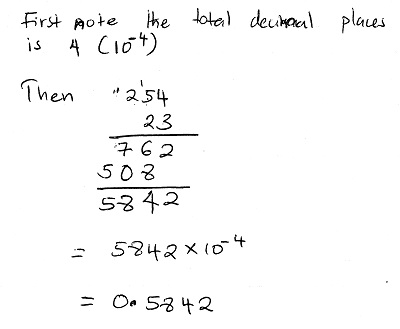 First note the total decimal places
is 4 (10⁻⁴)
Then 254
23
762
508
5842
= 5842 × 10⁻⁴
= 0.5842